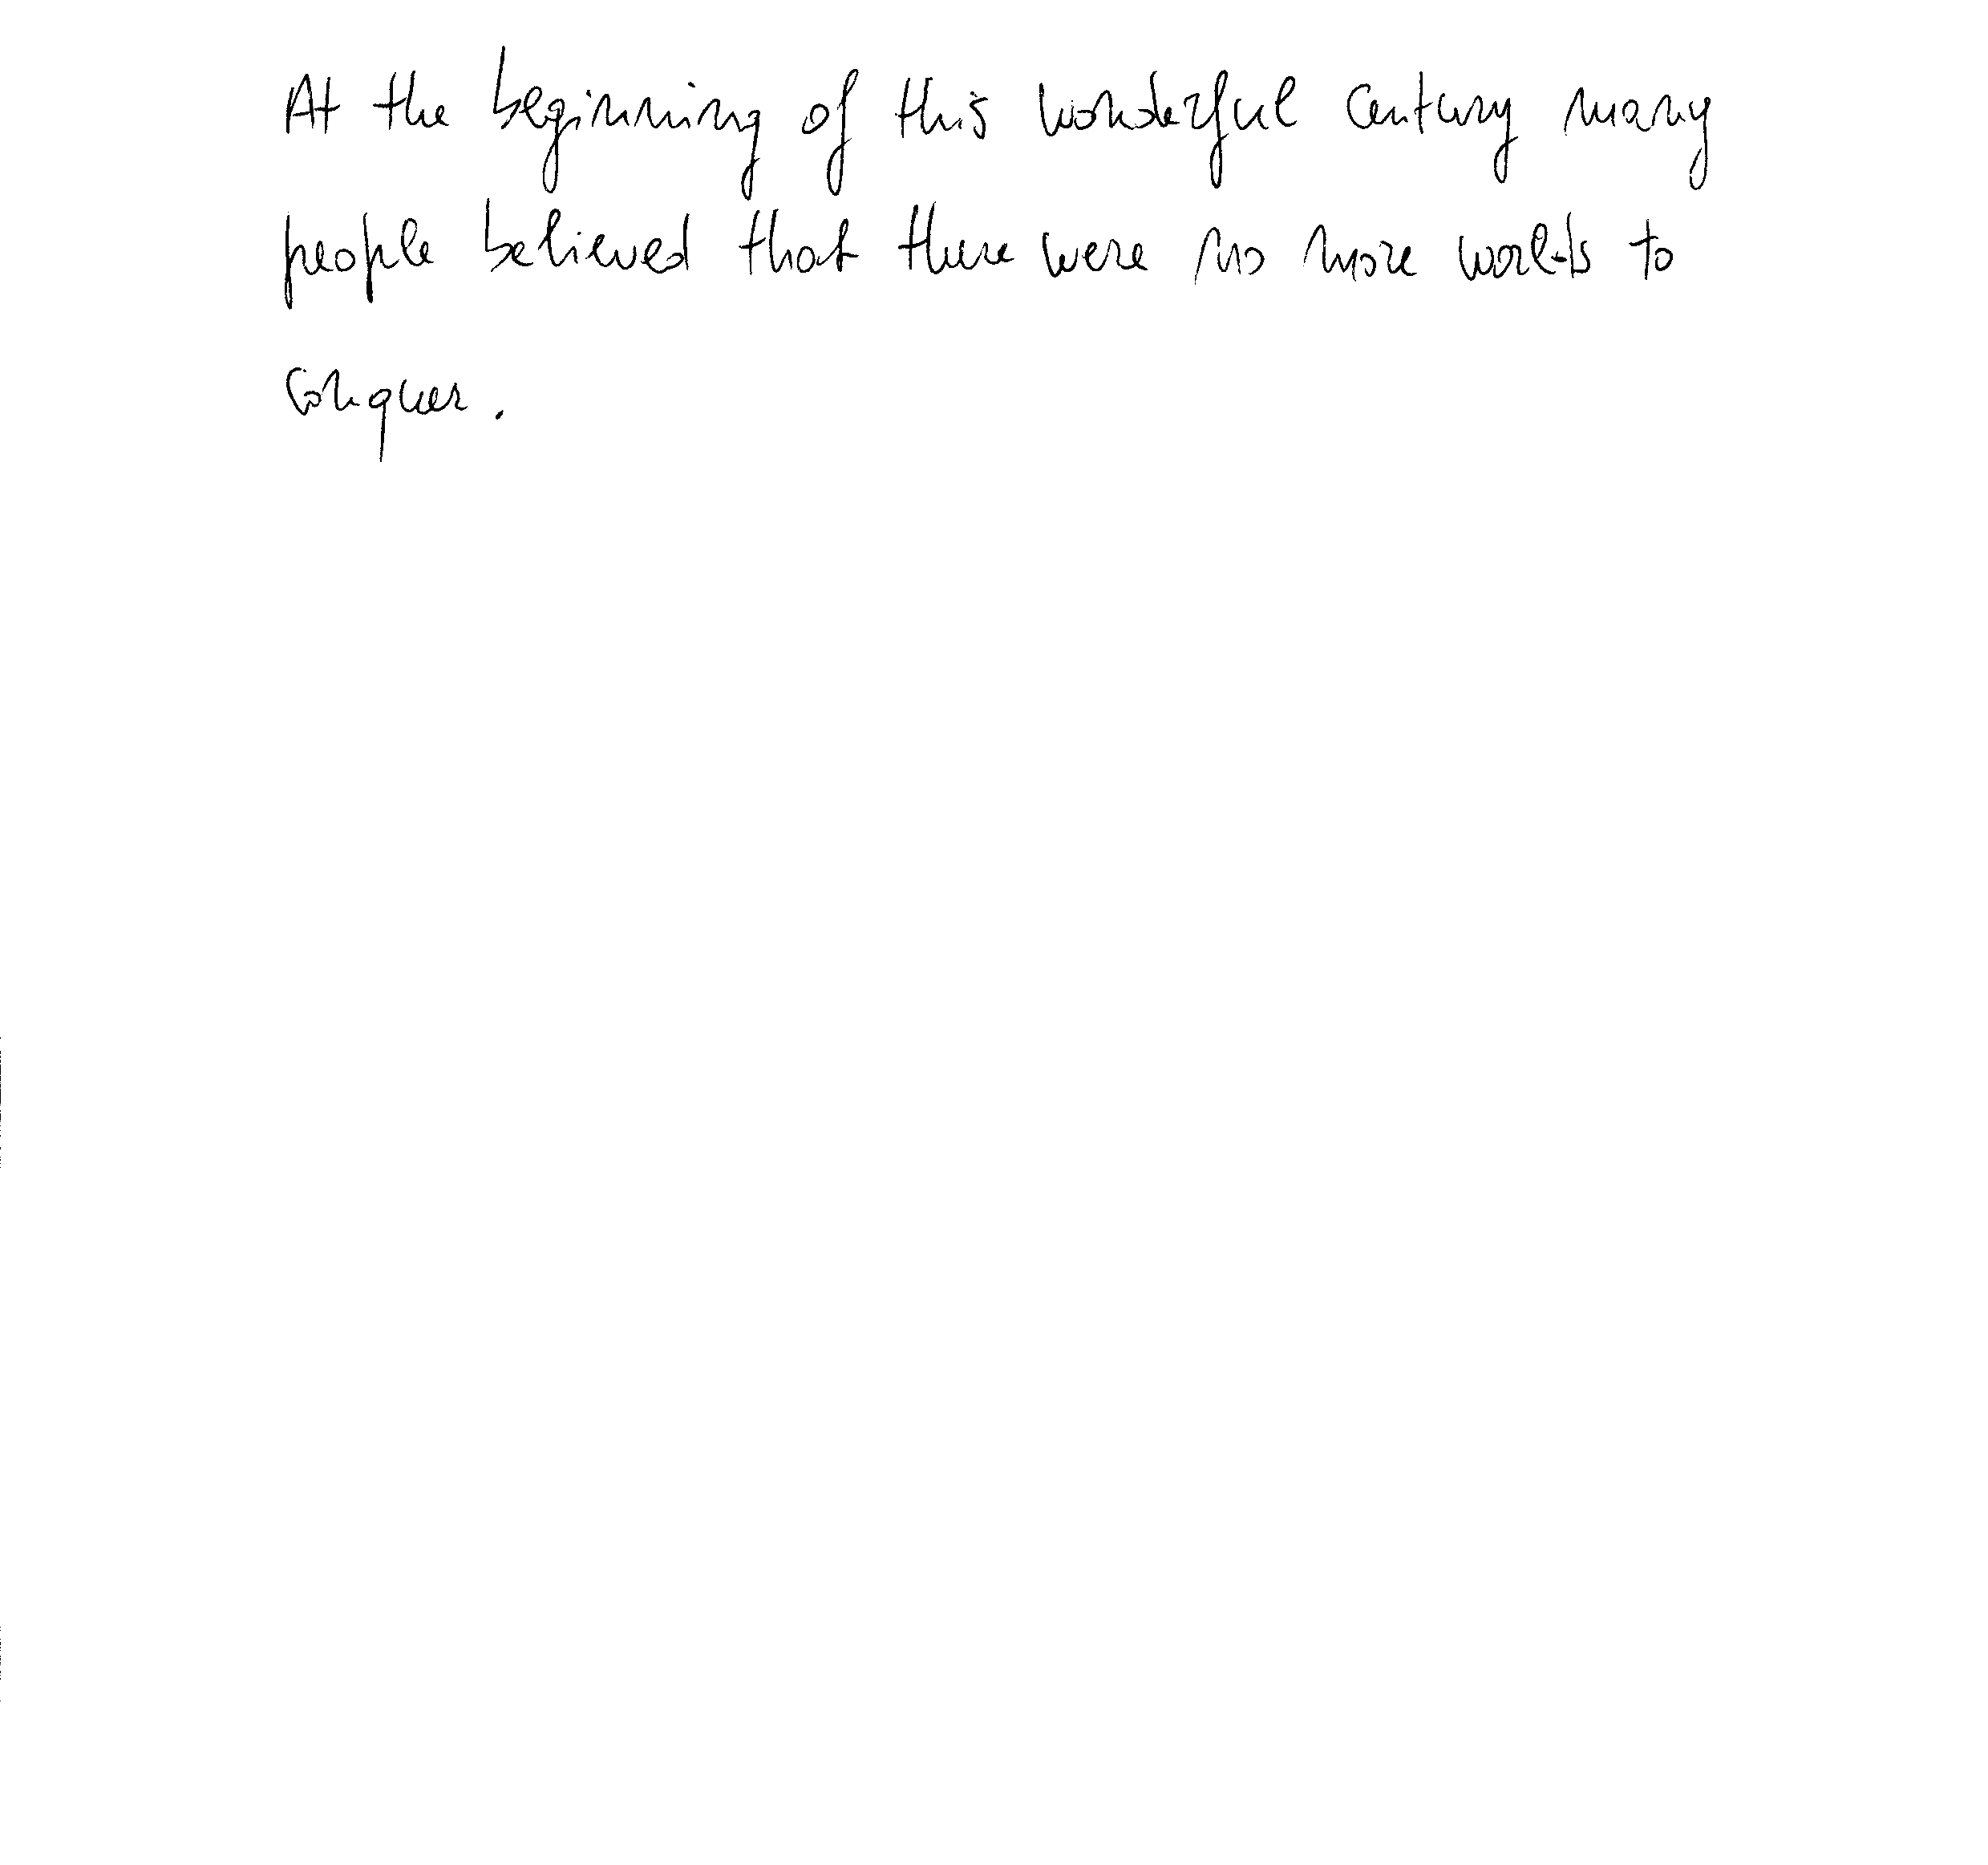 At the beginning of this wonderful century many
people believed that there were no more worlds to
conquer.